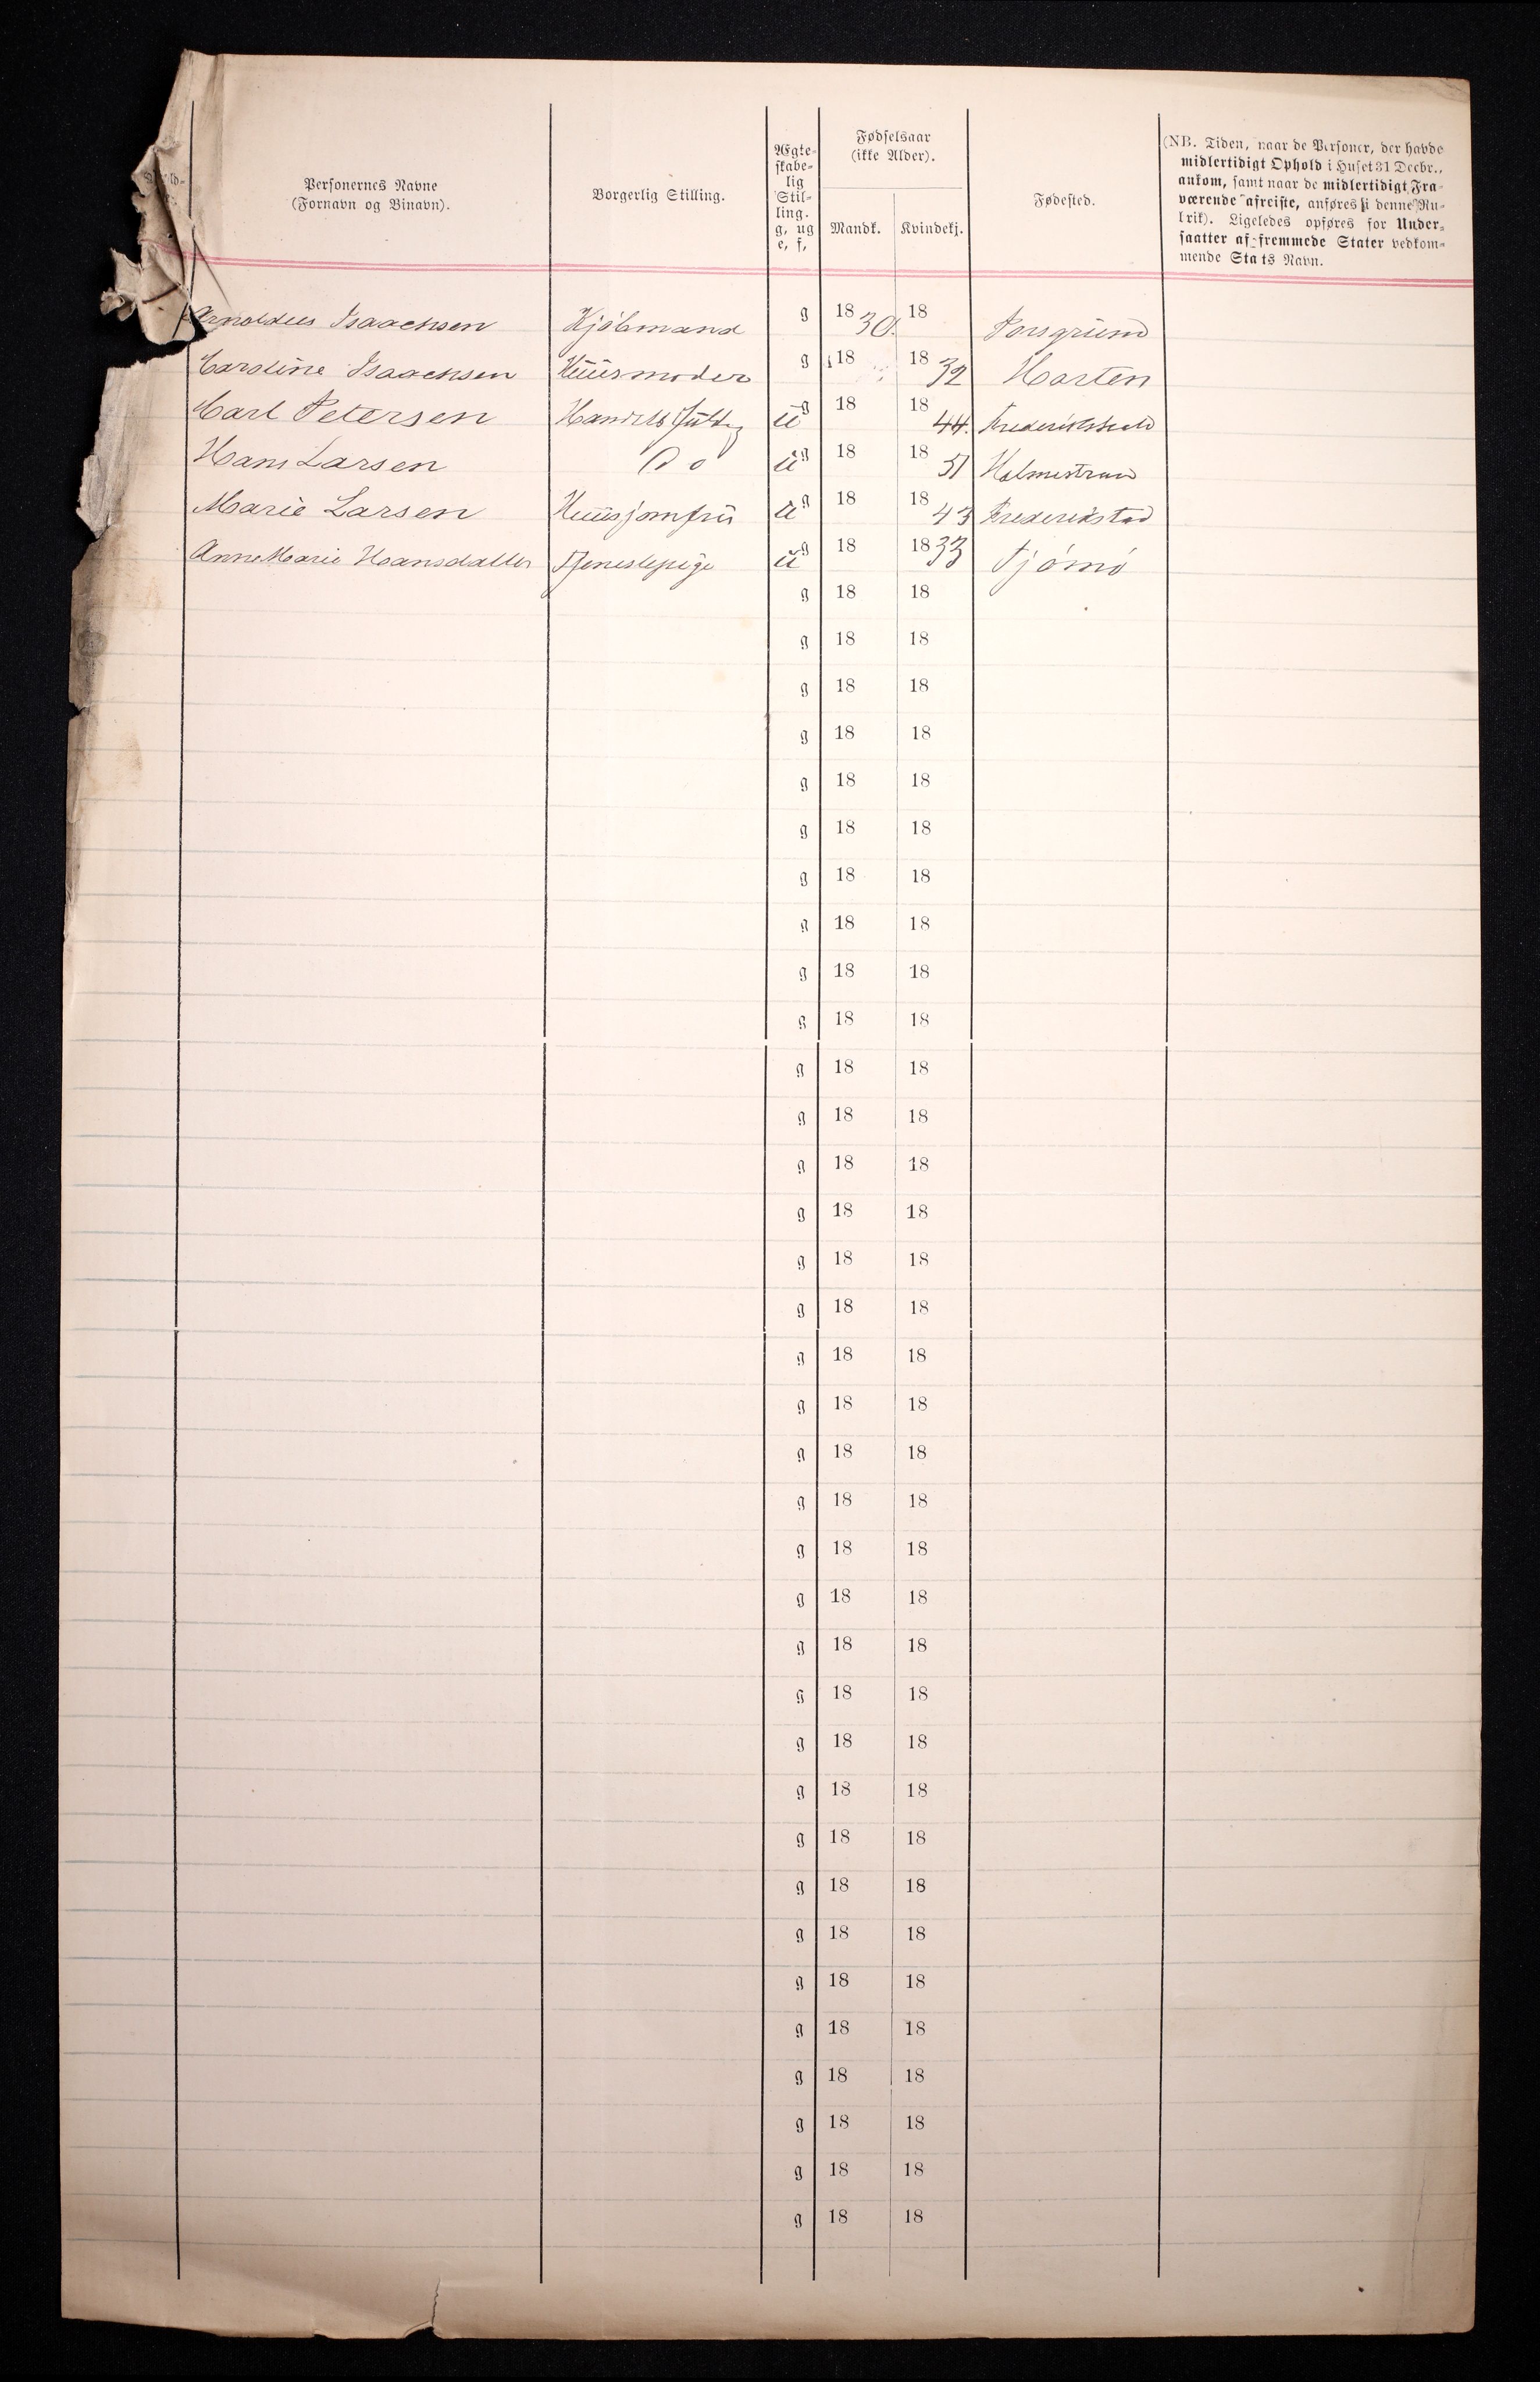 Personernes Navne
(Fornavn og Binavn).
Borgerlig Stilling.
Ægte-
skabe-
lig
Stil-
ling.
g, ug
e, f,
Fødselsaar
(ikke Alder).
Mandk.
Kvindekj.
Fødested.
(NB. Tiden, naar de Personer, der havde
midlertidigt Ophold i Huset 31 Decbr.,
ankom, samt naar de midlertidigt Fra-
værende afreiste, anføres i denne Ru-
brik). Ligeledes opføres for Under-
saatter af fremmede Stater vedkom-
mende Stats Navn.
Arnoldus Isaachsen Kjöbmand g 18 30. 18 Porsgrund
Caroline Isaachsen Huusmoder g 18 18 32 Horten
Carl Petersen ug 18 18 44. Frederikshald
Hans Larsen Do ug 18 18 51 Holmestrand
Marie Larsen Huusjomfru ug 18 18 43 Frederikstad
Anne Marie Hansdatter Tjenestepige ug 18 18 33 Tjömö
g 18 18
g 18 18
g 18 18
g 18 18
g 18 18
g 18 18
g 18 18
g 18 18
g 18 18
g 18 18
g 18 18
g 18 18
g 18 18
g 18 18
g 18 18
g 18 18
g 18 18
g 18 18
g 18 18
g 18 18
g 18 18
g 18 18
g 18 18
g 18 18
g 18 18
g 18 18
g 18 18
g 18 18
g 18 18
g 18 18
g 18 18
g 18 18
g 18 18
g 18 18
g 18 18